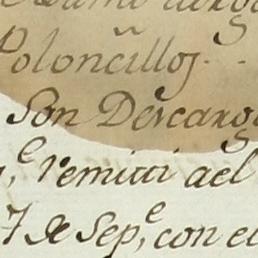 Poloncillos
Son Descarg
remiti ael
7 de Sep.e, con el